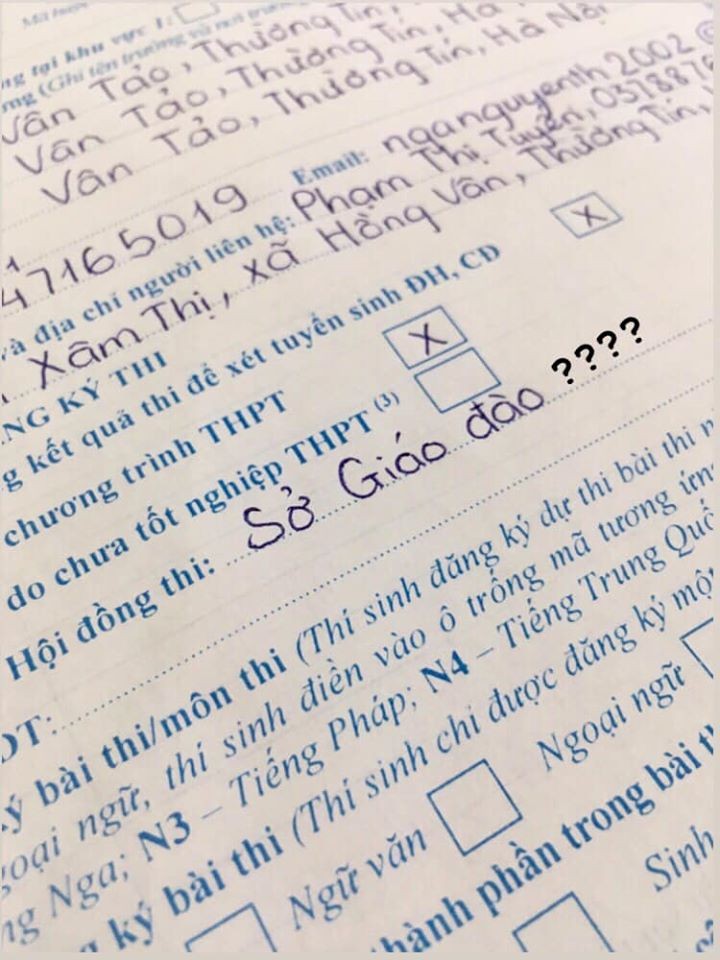 ng tại khu vực 1:
Vân Tảo, Thường Tín,
Vân Tảo, Thường Tín, Hà
Vân Tảo, Thường Tín, Hà Nội
47165019 Email: nganguyenth2002@
và địa chỉ người liên hệ: Phạm Thị Tuyến, 0378876
Xâm Thị, xã Hồng Vân, Thường Tín,
NG KÝ THI
g kết quả thi để xét tuyển sinh ĐH, CĐ X
chương trình THPT X
do chưa tốt nghiệp THPT (3)
Hội đồng thi: Sở Giáo đào ????
ĐT:
ý bài thi/môn thi (Thí sinh đăng ký dự thi bài thi
goại ngữ, thí sinh điền vào ô trống mã tương ứng
ng Nga; N3 – Tiếng Pháp; N4 – Tiếng Trung Quố
ký bài thi (Thí sinh chỉ được đăng ký mộ
Ngữ văn Ngoại ngữ
thành phần trong bài t
Sinh